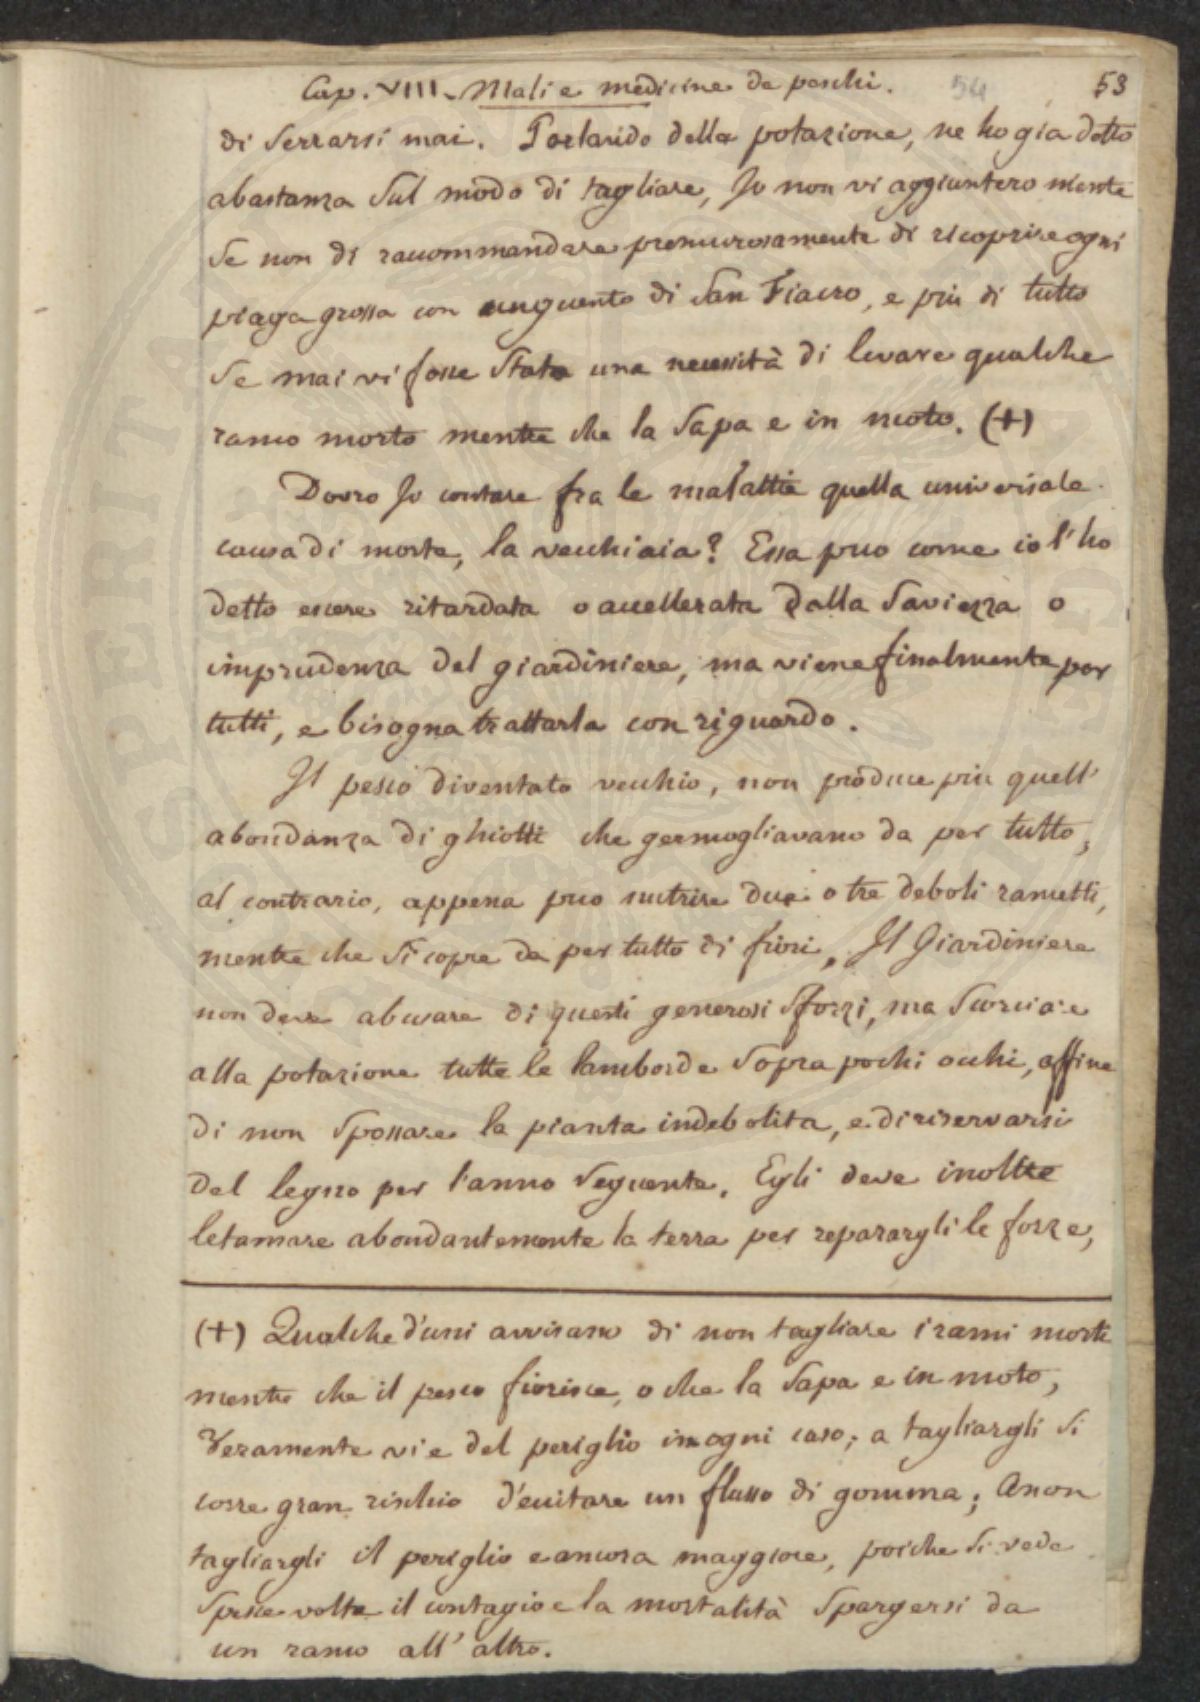 Cap. VIII. Mali e medicine de peschi. 54 53
di Serrarsi mai. Parlando della potazione, ne ho gia detto
abastanza Sul modo di tagliare, Io non vi aggiuntero niente
Se non di racommandare premurosamente di ricoprire ogni
piaga grossa con unguento di San Fiacro, e più di tutto
Se mai vi fosse Stata una necessità di levare qualche
ramo morto mentre che la Sapa e in moto. (+)
Dovro Io contare fra le malattie quella universale
causa di morte, la vecchiaia? Essa puo come io l'ho
detto essere ritardata o accellerata dalla Saviezza o
imprudenza del giardiniere, ma viene finalmente per
tutti, e bisogna trattarla con riguardo.
Il pesco diventato vecchio, non produce più quell'
abondanza di ghiotti che germogliavano da per tutto,
al contrario, appena puo nutrire due o tre deboli rametti,
mentre che Si copre da per tutto di fiori. Il Giardiniere
non deve abusare di questi generosi Sforzi, ma Scorciare
alla potazione tutte le lamborde Sopra pochi occhi, affine
di non Spossare la pianta indebolita, e di riservarsi
del legno per l'anno Seguente. Egli deve inoltre
letamare abondantemente la terra per reparargli le forze,
(+) Qualche d'uni avvisano di non tagliare i rami morti
mentre che il pesco fiorisce, o che la Sapa e in moto,
Veramente vi e del periglio in ogni caso; a tagliargli Si
corre gran rischio d'eccitare un flusso di gomma; A non
tagliargli il periglio e ancora maggiore, poiche Si vede
Spesse volte il contagio e la mortalità Spargersi da
un ramo all' altro.